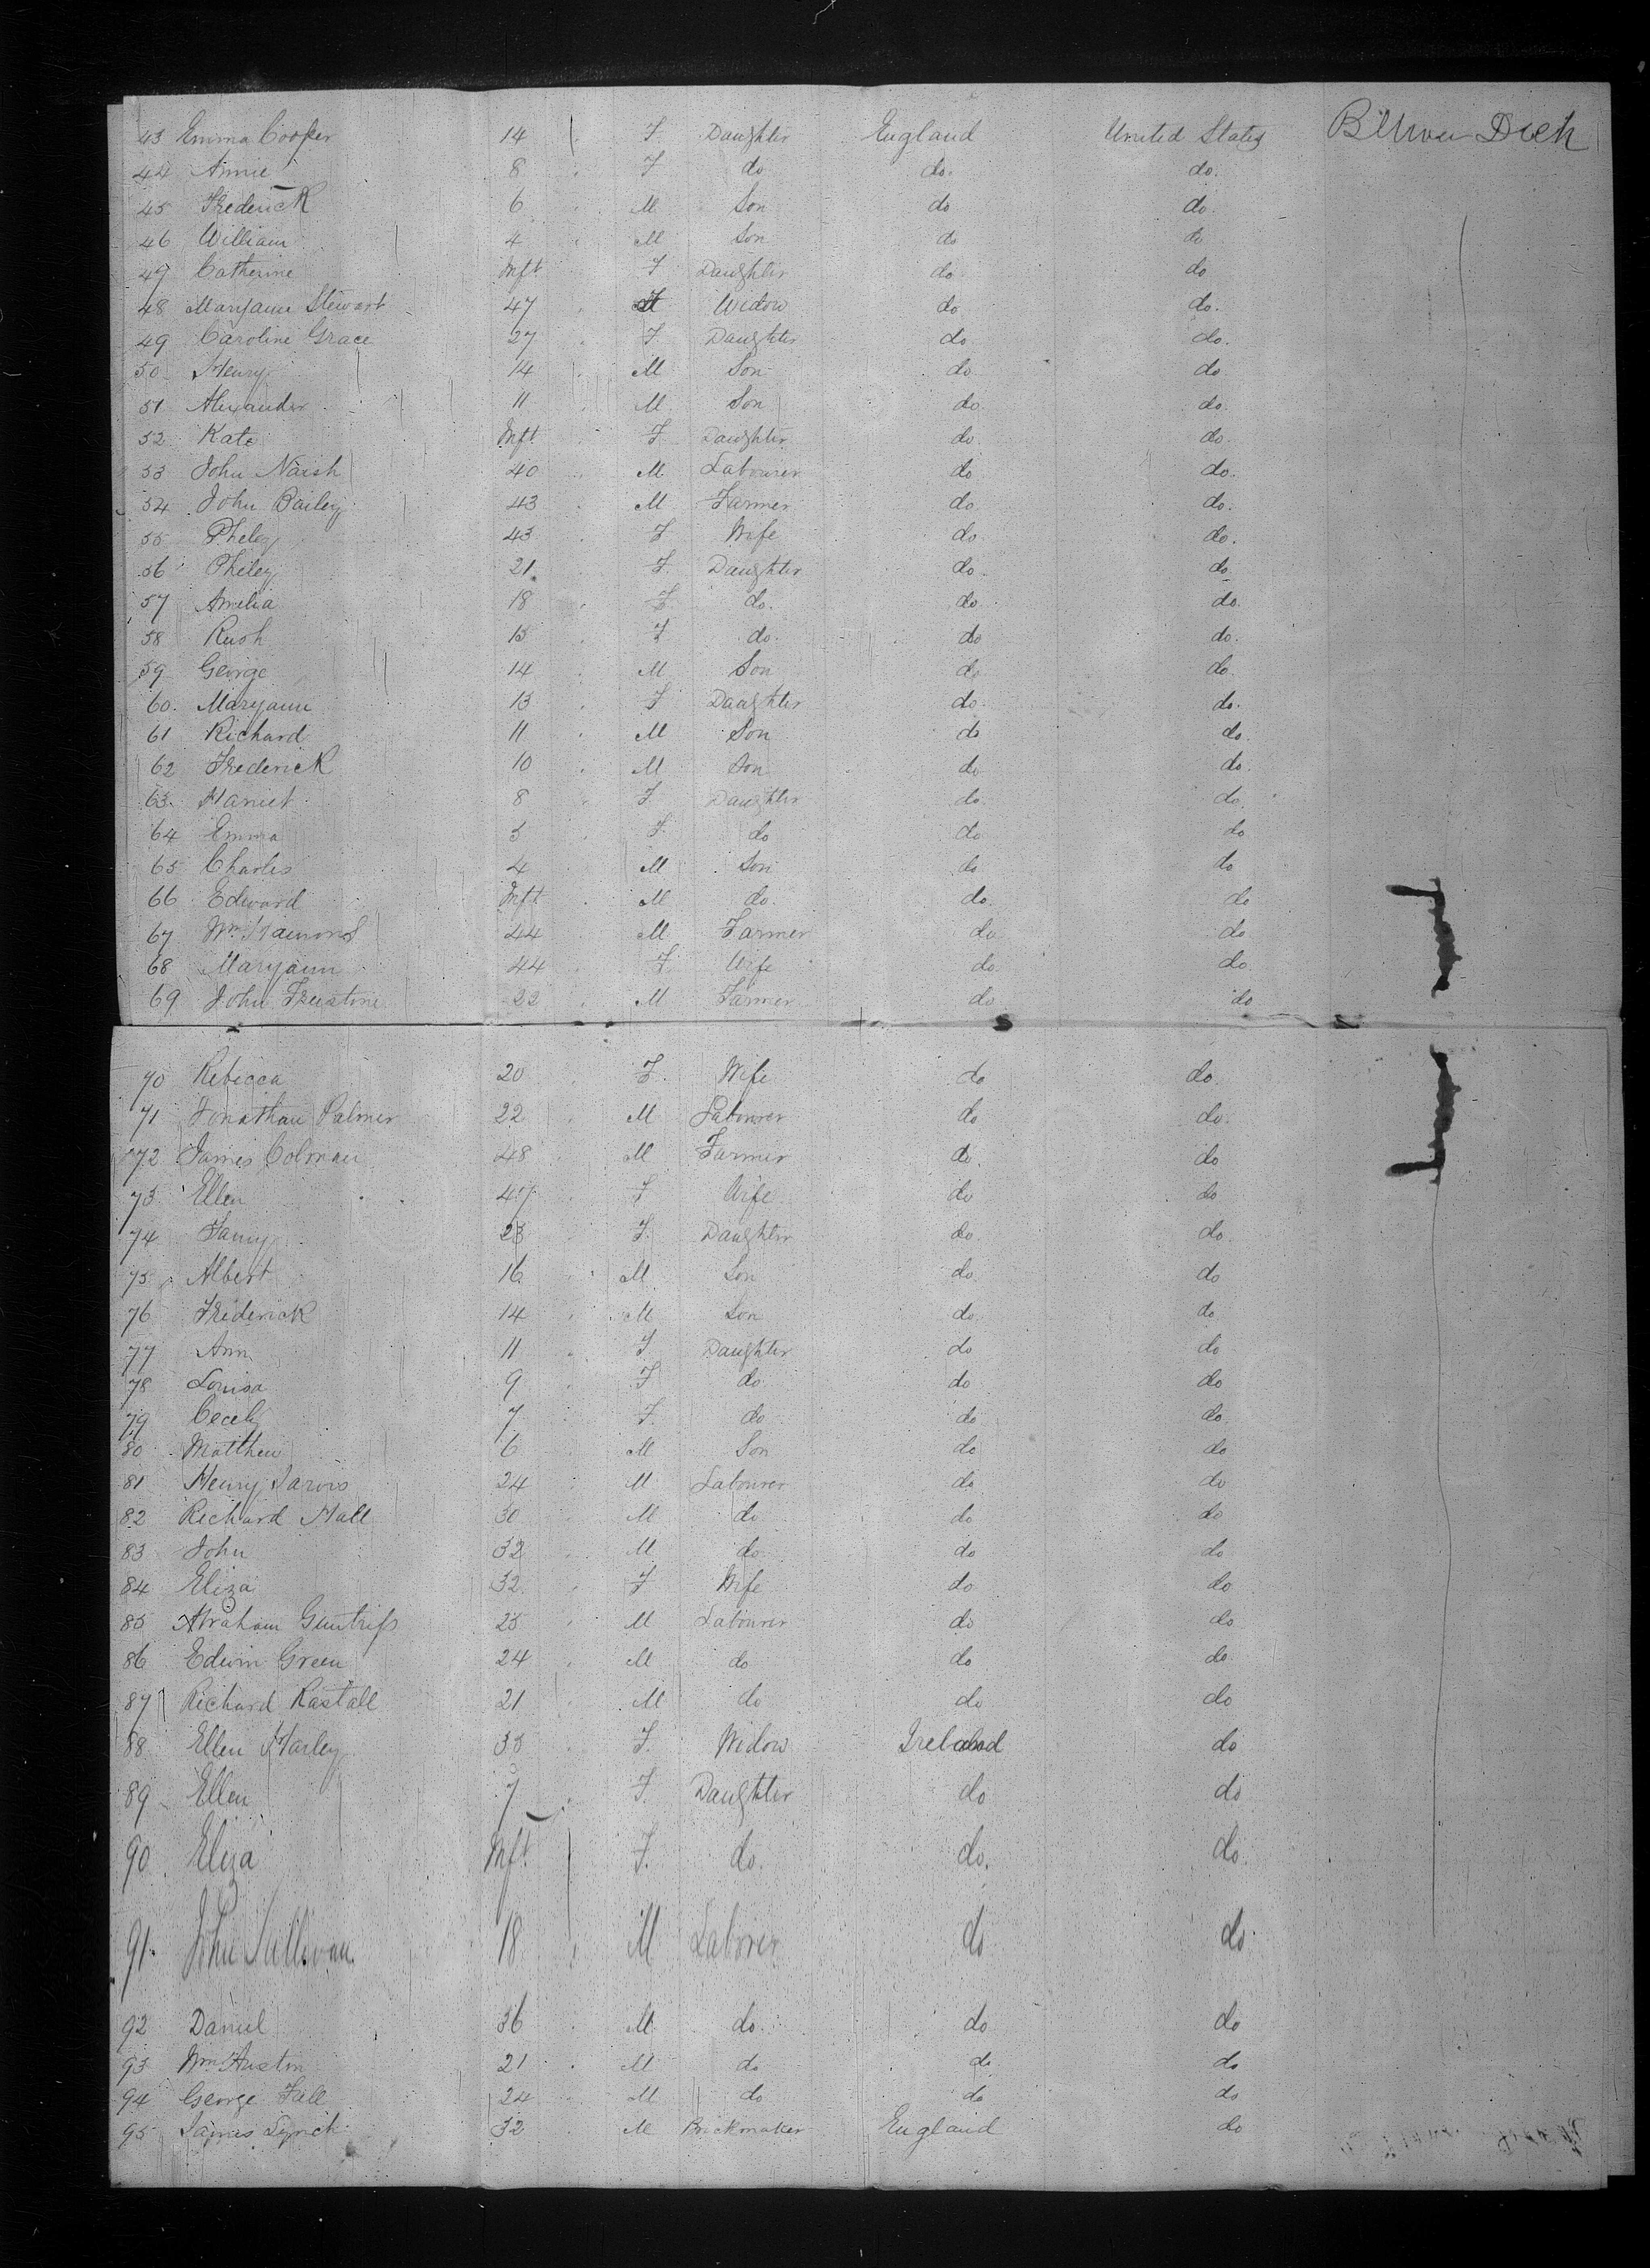 43 Emma Cooper 14 F Daughter England United States Between Deck
44 Annie 8 F do do. do.
45 Frederick 6 M Son do do.
46 William 4 M Son do do
49 Catherine Inft F Daughter do do
48 Maryann Stewart 47 F Widow do do.
49 Caroline Grace 27 F. Daughter do do.
50 Henry 14 M Son do do
51 Alexander 11 M Son do. do.
52 Kate Inft F. Daughter do. do.
53 John Naish 40 M. Labourer do do.
54 John Bailey 43 M Farmer do. do.
55 Pheley 43 F Wife do do.
56 Pheley 21 F. Daughter do. do.
57 Amelia 18 F do. do. do.
58 Ruth 15 F do. do do.
59 George 14 M Son do do.
60. Maryann 13 F Daughter do. do.
61 Richard 11 M Son do do.
62 Frederick 10 M Son do do.
63. Harriet 8 F. Daughter do. do.
64 Emma 5 F. do do do
65 Charles 4 M Son do do
66 Edward Inft M do. do. do
67 Wm 44 M Farmer do do
68 Maryann 44 F Wife do. do.
69 John Freestone 22 M Farmer do do
70 Rebecca 20 F. Wife do do.
71 Jonathan Palmer 22 M Labourer do do.
72 James Colman 48 M Farmer do. do
73 Ellen 47 F Wife do do
74 Fanny 23 F. Daughter do. do.
75 Albert 16 M Son do. do
76 Frederick 14 M Son do. do
77 Ann 11 F. Daughter do do
78 Louisa 9 F do do do
79 Cecely 7 F. do do do.
80 Matthew 6 M Son do do
81 Henry Jarvis 24 M Labourer do do
82 Richard Hall 30 M do do do
83 John 32 M do do do
84 Eliza 32 F Wife do do
85 Abraham Guntrip 25 M Labourer do do
86 Edwin Green 24 M do do do
87 Richard Rastall 21 M do do do
88 Ellen Harley 35 F. Widow Ireland do
89 Ellen 7 F. Daughter do do
90 Eliza Inft. F. do. do. do.
91. John Sullivan 18 M Laborer do do.
92 Daniel 36 M do. do do
93 Wm Austin 21 M do do do
94 George Fall 24 M do do do
95 James Lynch 32 M Brickmaker England do